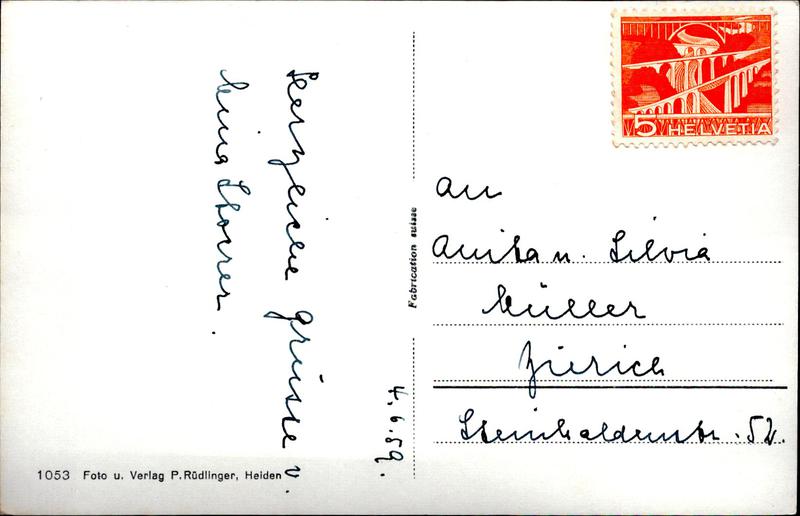 Herzliche Grüsse v.
Nina Storrer.
4.6.59.
1053 Foto u. Verlag P. Rüdlinger, Heiden
Fabrication suisse
5 HELVETIA
An
Anita u. Silvia
Müller
Zürich
Steinhaldenstr. 52.